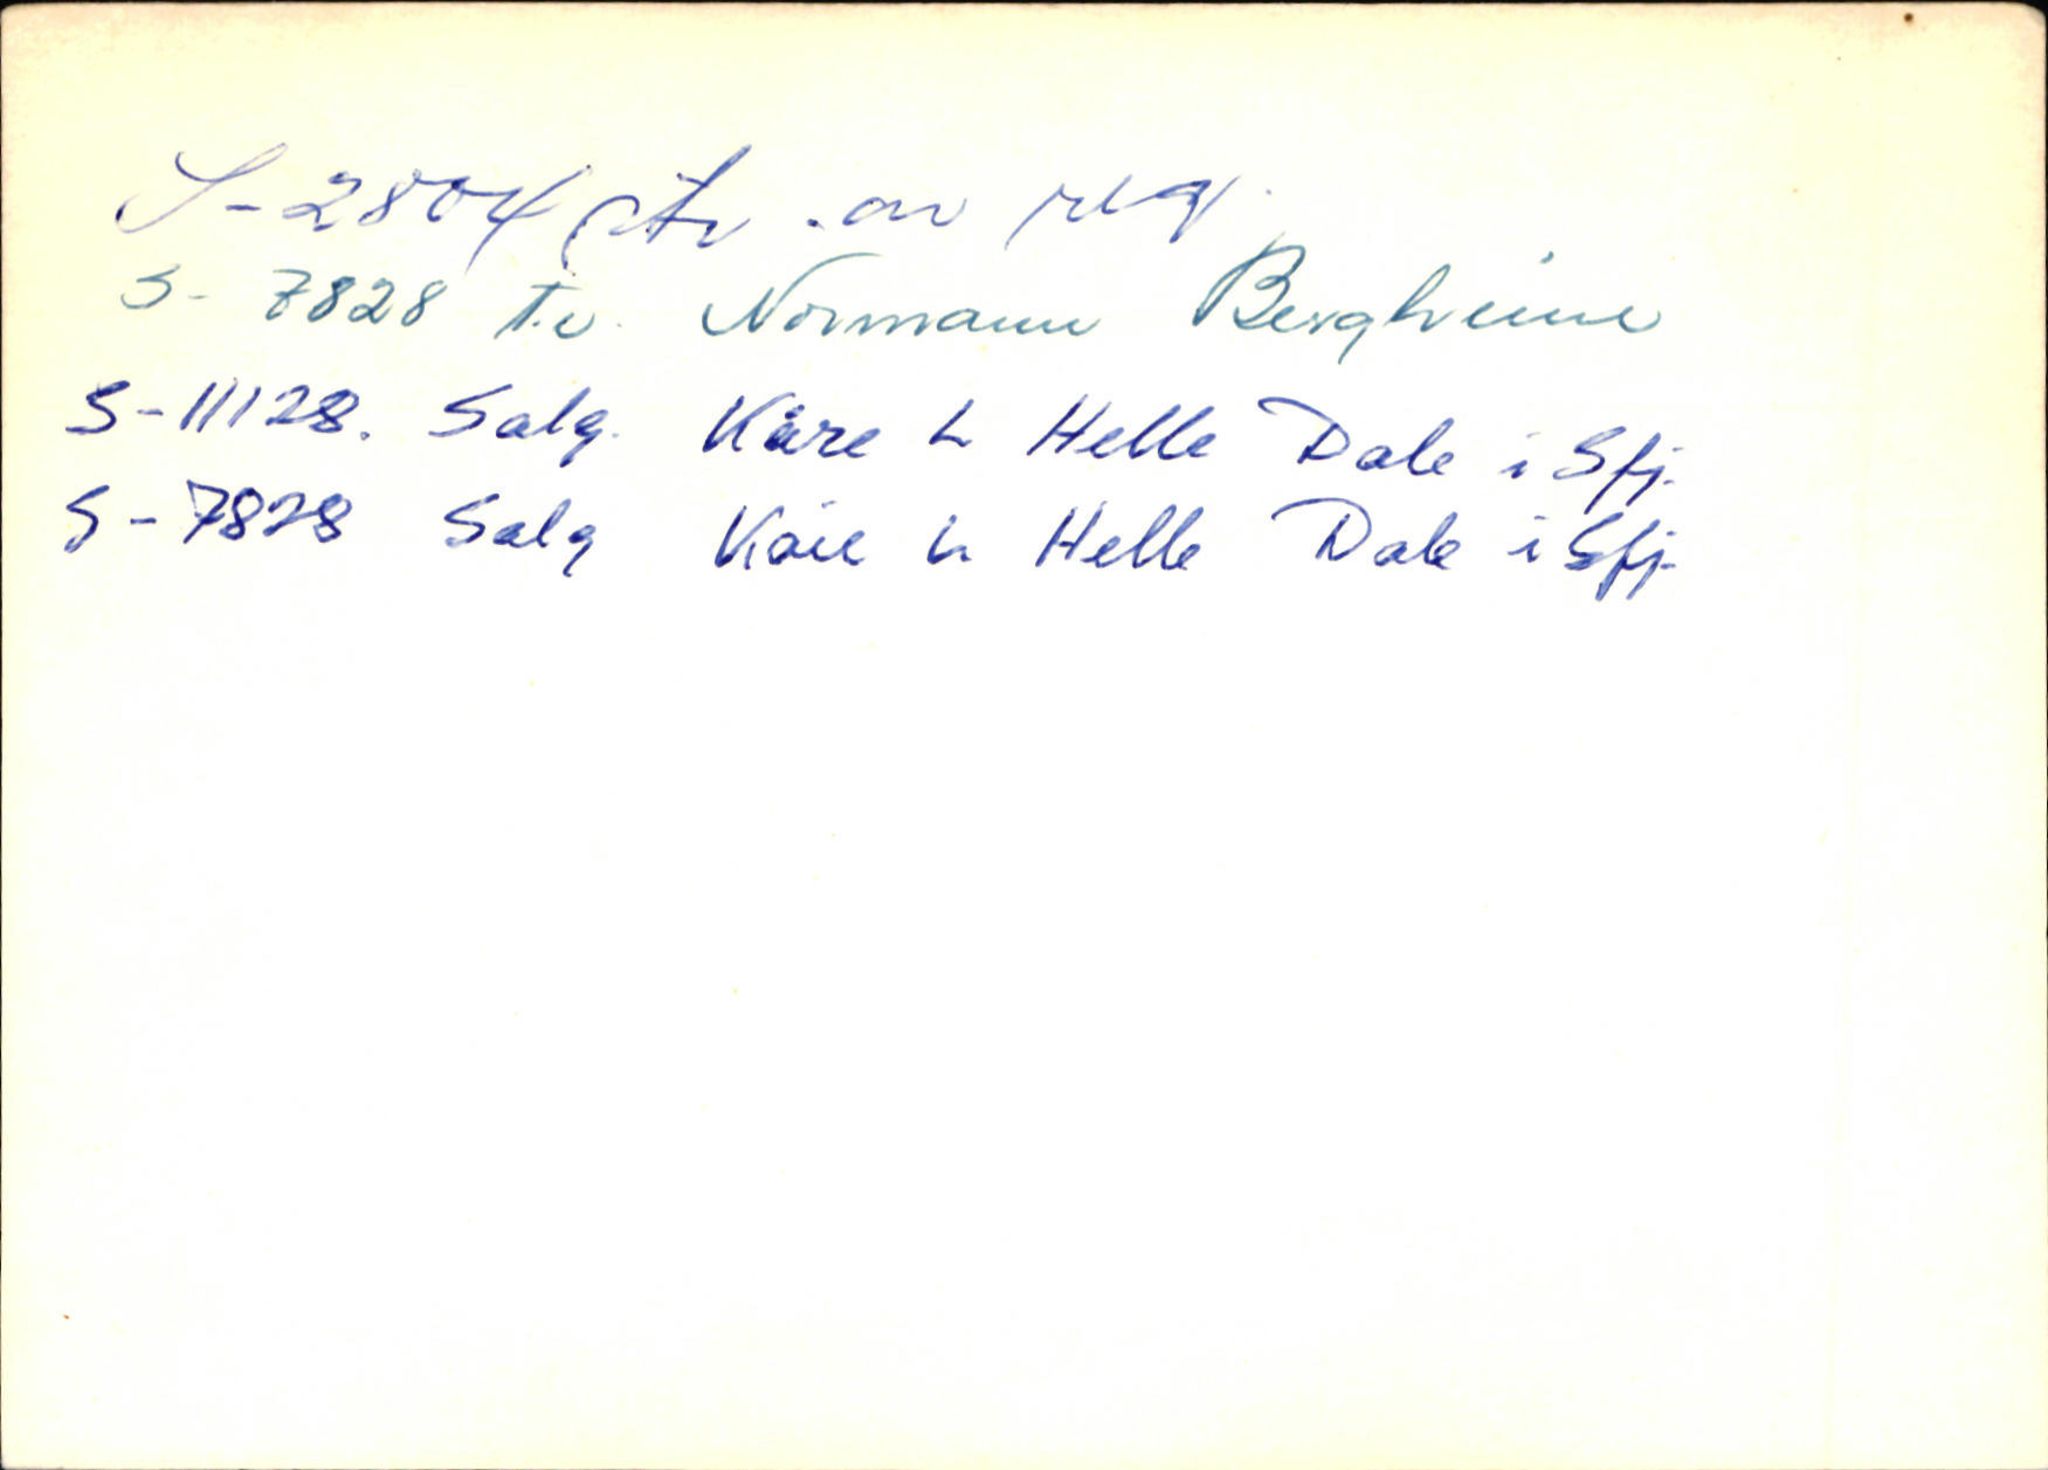 S-2804 str. av reg.
S- 7828 t.v. Normann Bergheime
S-11128. Salg. Kåre L Helle Dale i Sfj.
S-7828 Salg Kåre L Helle Dale i Sfj.